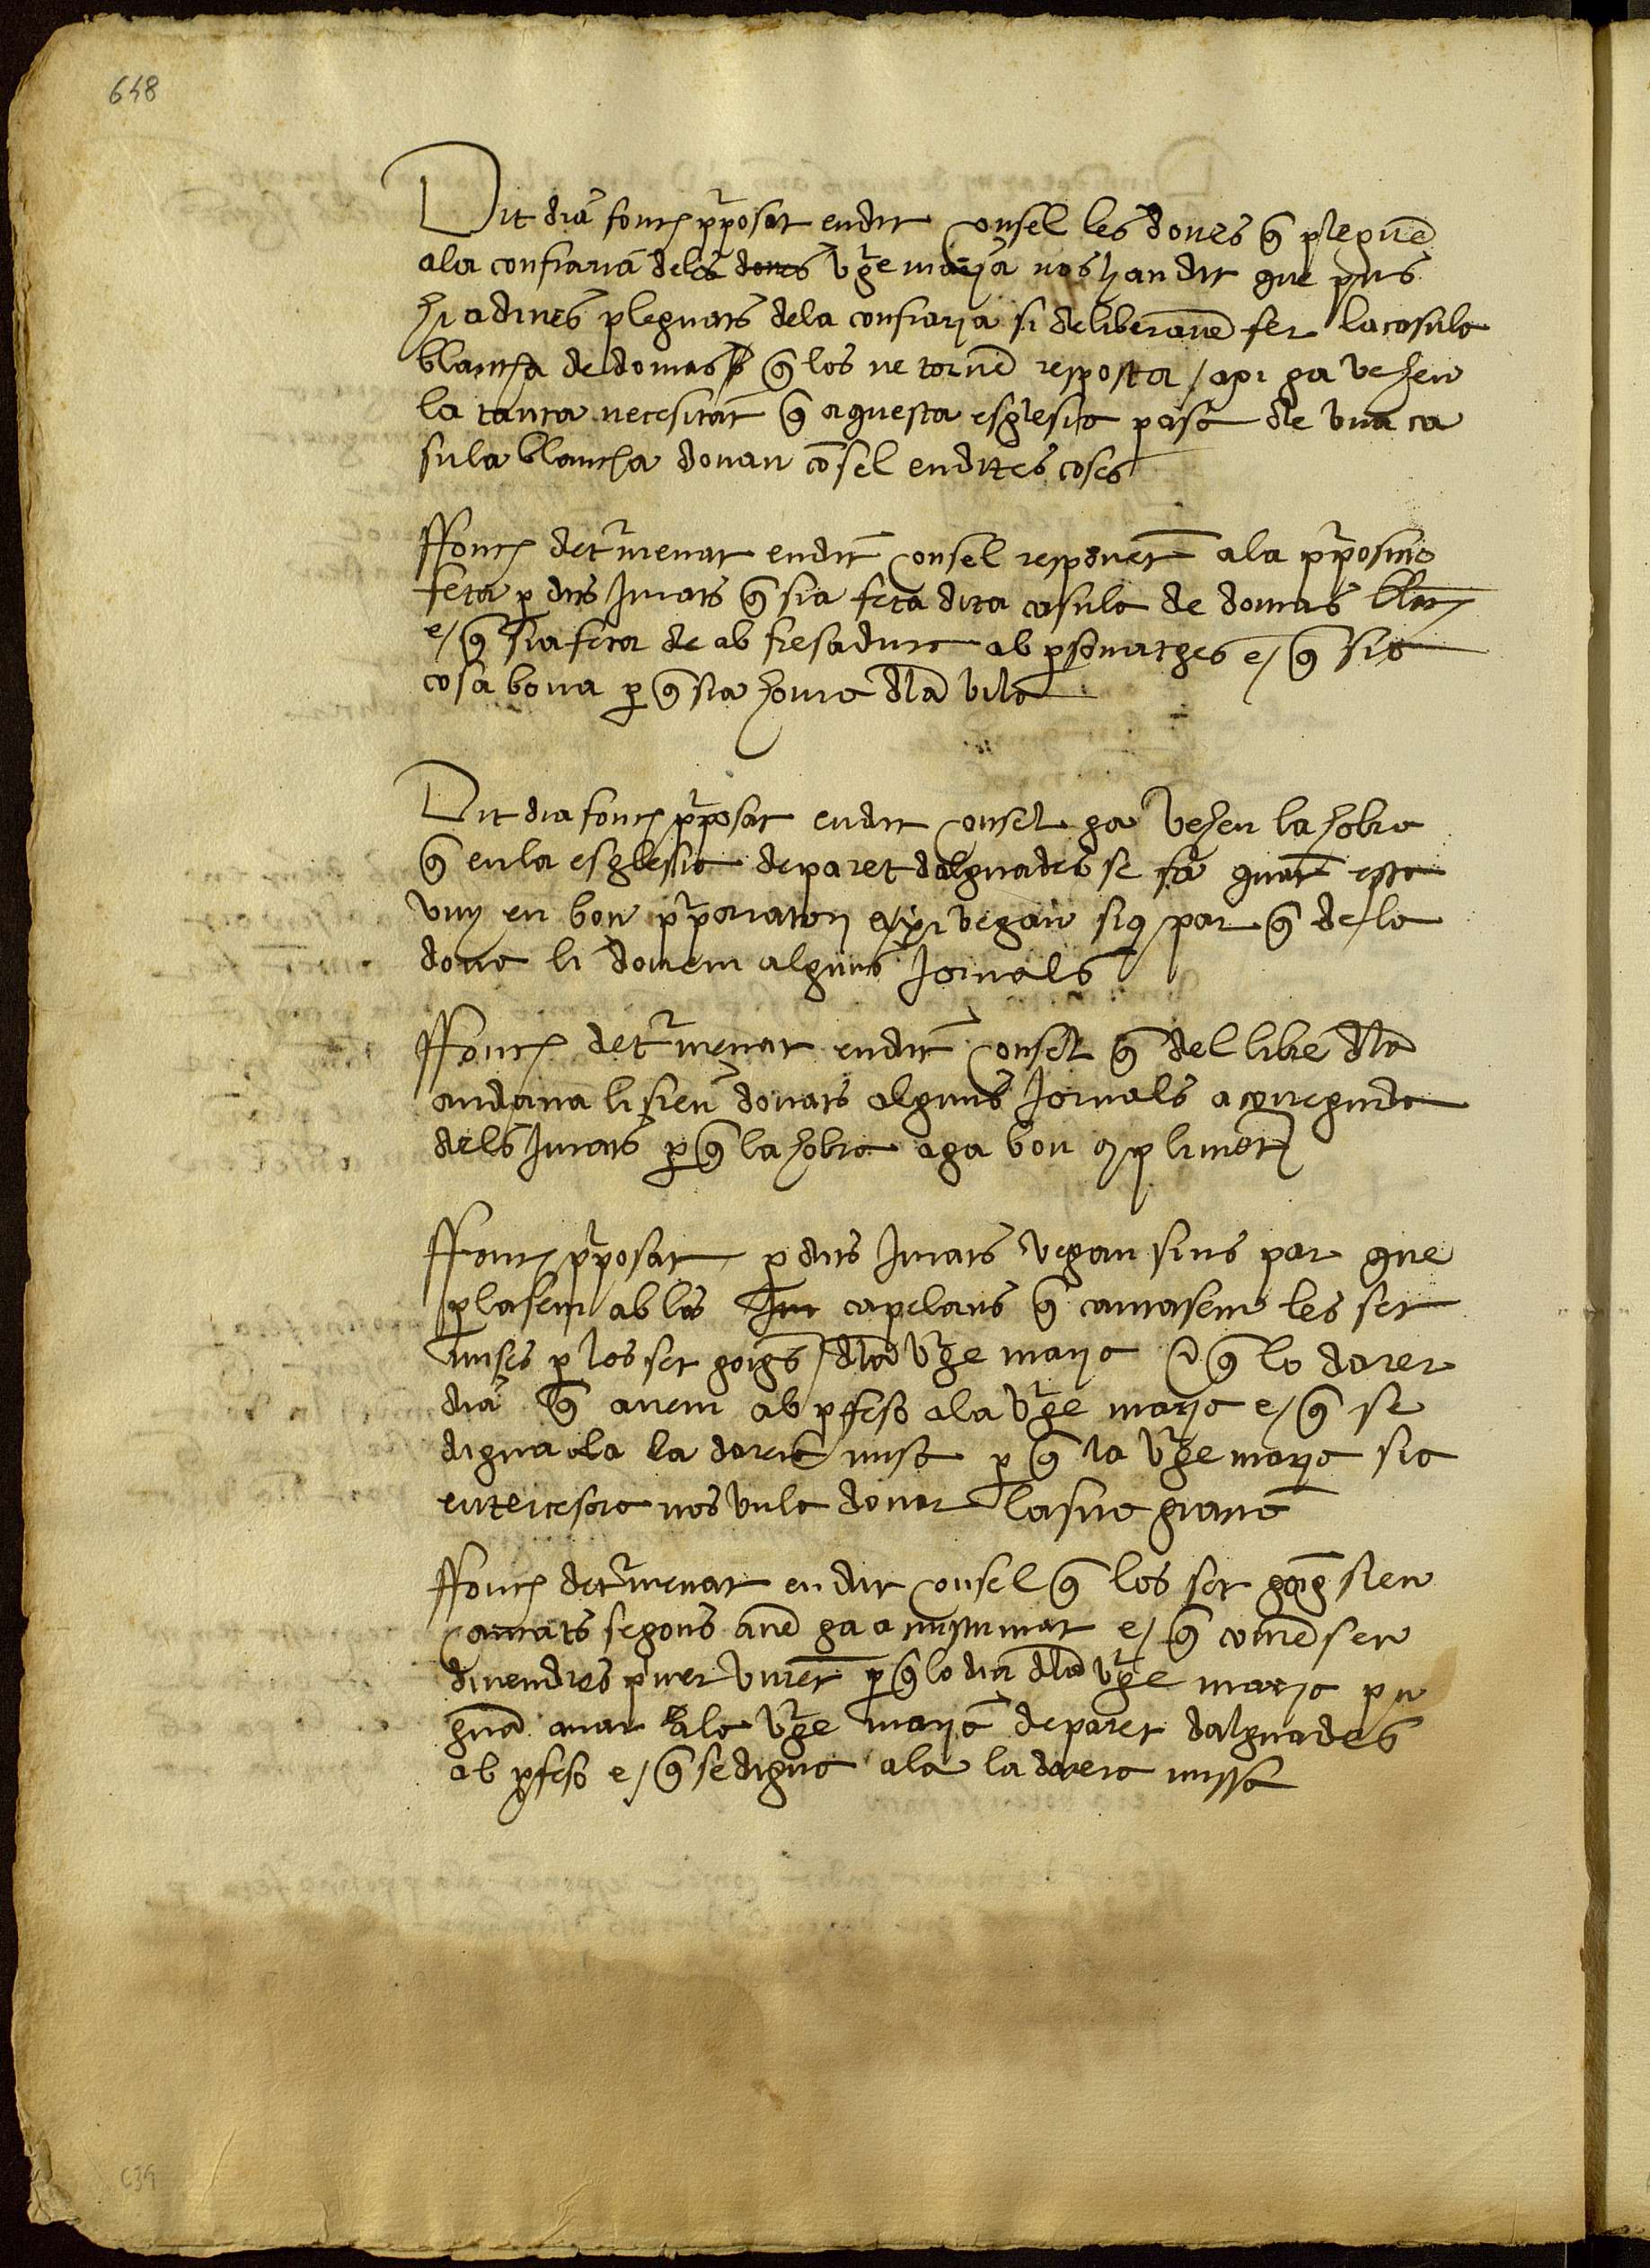 648
Dit dia fonch pposat en dit consel les dones q̃ pleguẽ
a la confraria de les dones v̾ge marya nos han dit que puis
hi a dines pleguats de la confrarya si deliberauẽ fer la casula
blancha de domas q̃ los ne tornẽ resposta / axi ga vehen
la tanta necesitat q̃ aquesta esglesia pasa de vna ca
sula blancha donau cõsel en dites coses
ffonch det̾menat en dit consel responẽt a la pposicio
feta p dits Jurats q̃ sia feta dita casula de domas blãch
e / q̃ sia feta de ab fresadura ab psonatges e / q̃ sia
cosa bona p q̃ sia honra dla vila
Dit dia fonch pposat en dit consel ga vehen la hobra
q̃ en la esglesia de paret dalguades se fa quãt esta
vuy en bon pparatori e / axi vegau sius par q̃ de la
dona li donem alguns Jornals
ffonch det̾menat en dit consel q̃ del libre dla
andana li sien donats alguns Jornals a coneguda
dels Jurats p q̃ la hobra aga bon cõplimẽt
ffonch pposat p dits Jurats vegau sius par que
plasem ab los Jur capelans q̃ cantasem les set
mises p los set goigs dla v̾ge marya e q̃ lo darer
dia q̃ anem ab pfeso a la v̾ge marya e / q̃ se
digua ala la darera misa p q̃ la v̾ge marya sia
entercesora nos vula donar la sua gracia
ffonch det̾menat en dit consel q̃ los set goig sien
cantats segons auẽ ga acustumat e / q̃ comẽsen
diuendres p̾mer vinẽt p q̃ lo dia dla v̾ge marya pu
guã anar a la v̾ge marya de paret dalguades
ab pfeso e / q̃ se digua ala la darera missa
639